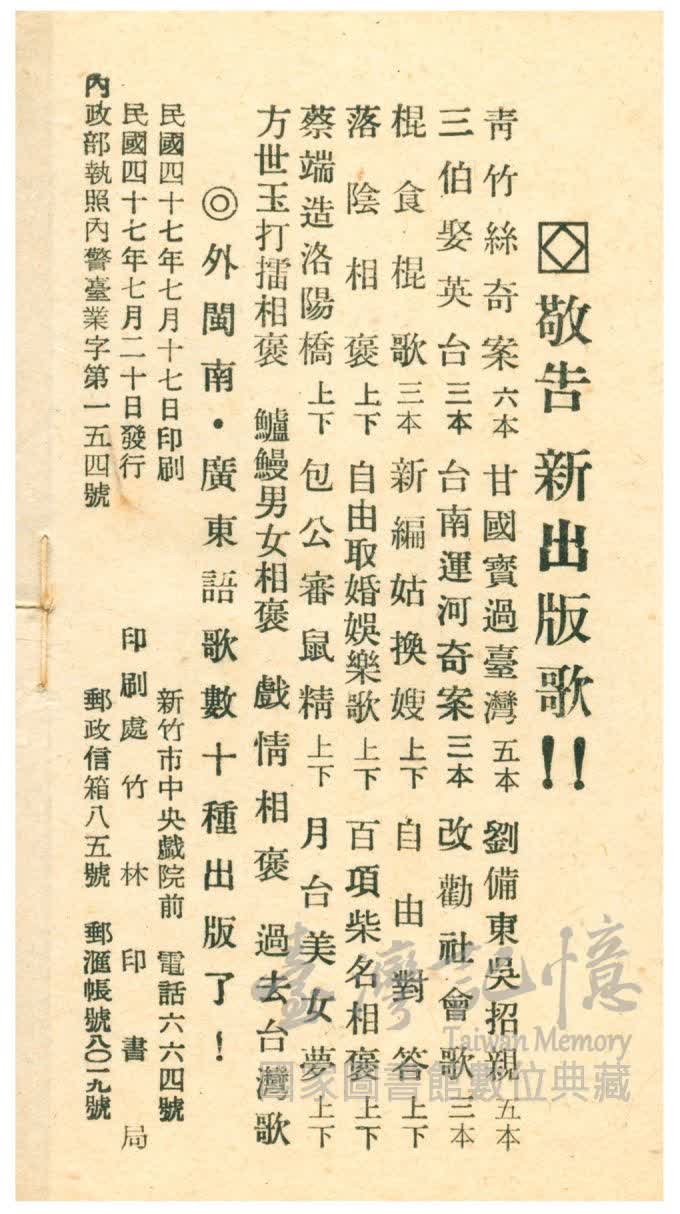 敬告 新出版歌!!
靑竹絲奇案 六本 甘國寶過臺灣 五本 劉備東吳招親 五本
三伯娶英台 三本 台南運河奇案 三本 改勸社會歌 三本
棍食棍歌 三本 新編姑換嫂 上下 自由對答 上下
落陰相褒 上下 自由取婚娛樂歌 上下 百項柴名相褒 上下
蔡端造洛陽橋 上下 包公審鼠精 上下 月台美女夢 上下
方世玉打擂相褒 鱸鰻男女相褒 戲情相褒 過去台灣歌
◎外閩南・廣東語歌數十種出版了!
民國四十七年七月十七日印刷 新竹市中央戲院前 電話六六四號
民國四十七年七月二十日發行 印刷處 竹林印書局
內政部執照內警臺業字第一五四號 郵政信箱八五號 郵滙帳號八〇一九號
臺灣記憶
Taiwan Memory
國家圖書館數位典藏